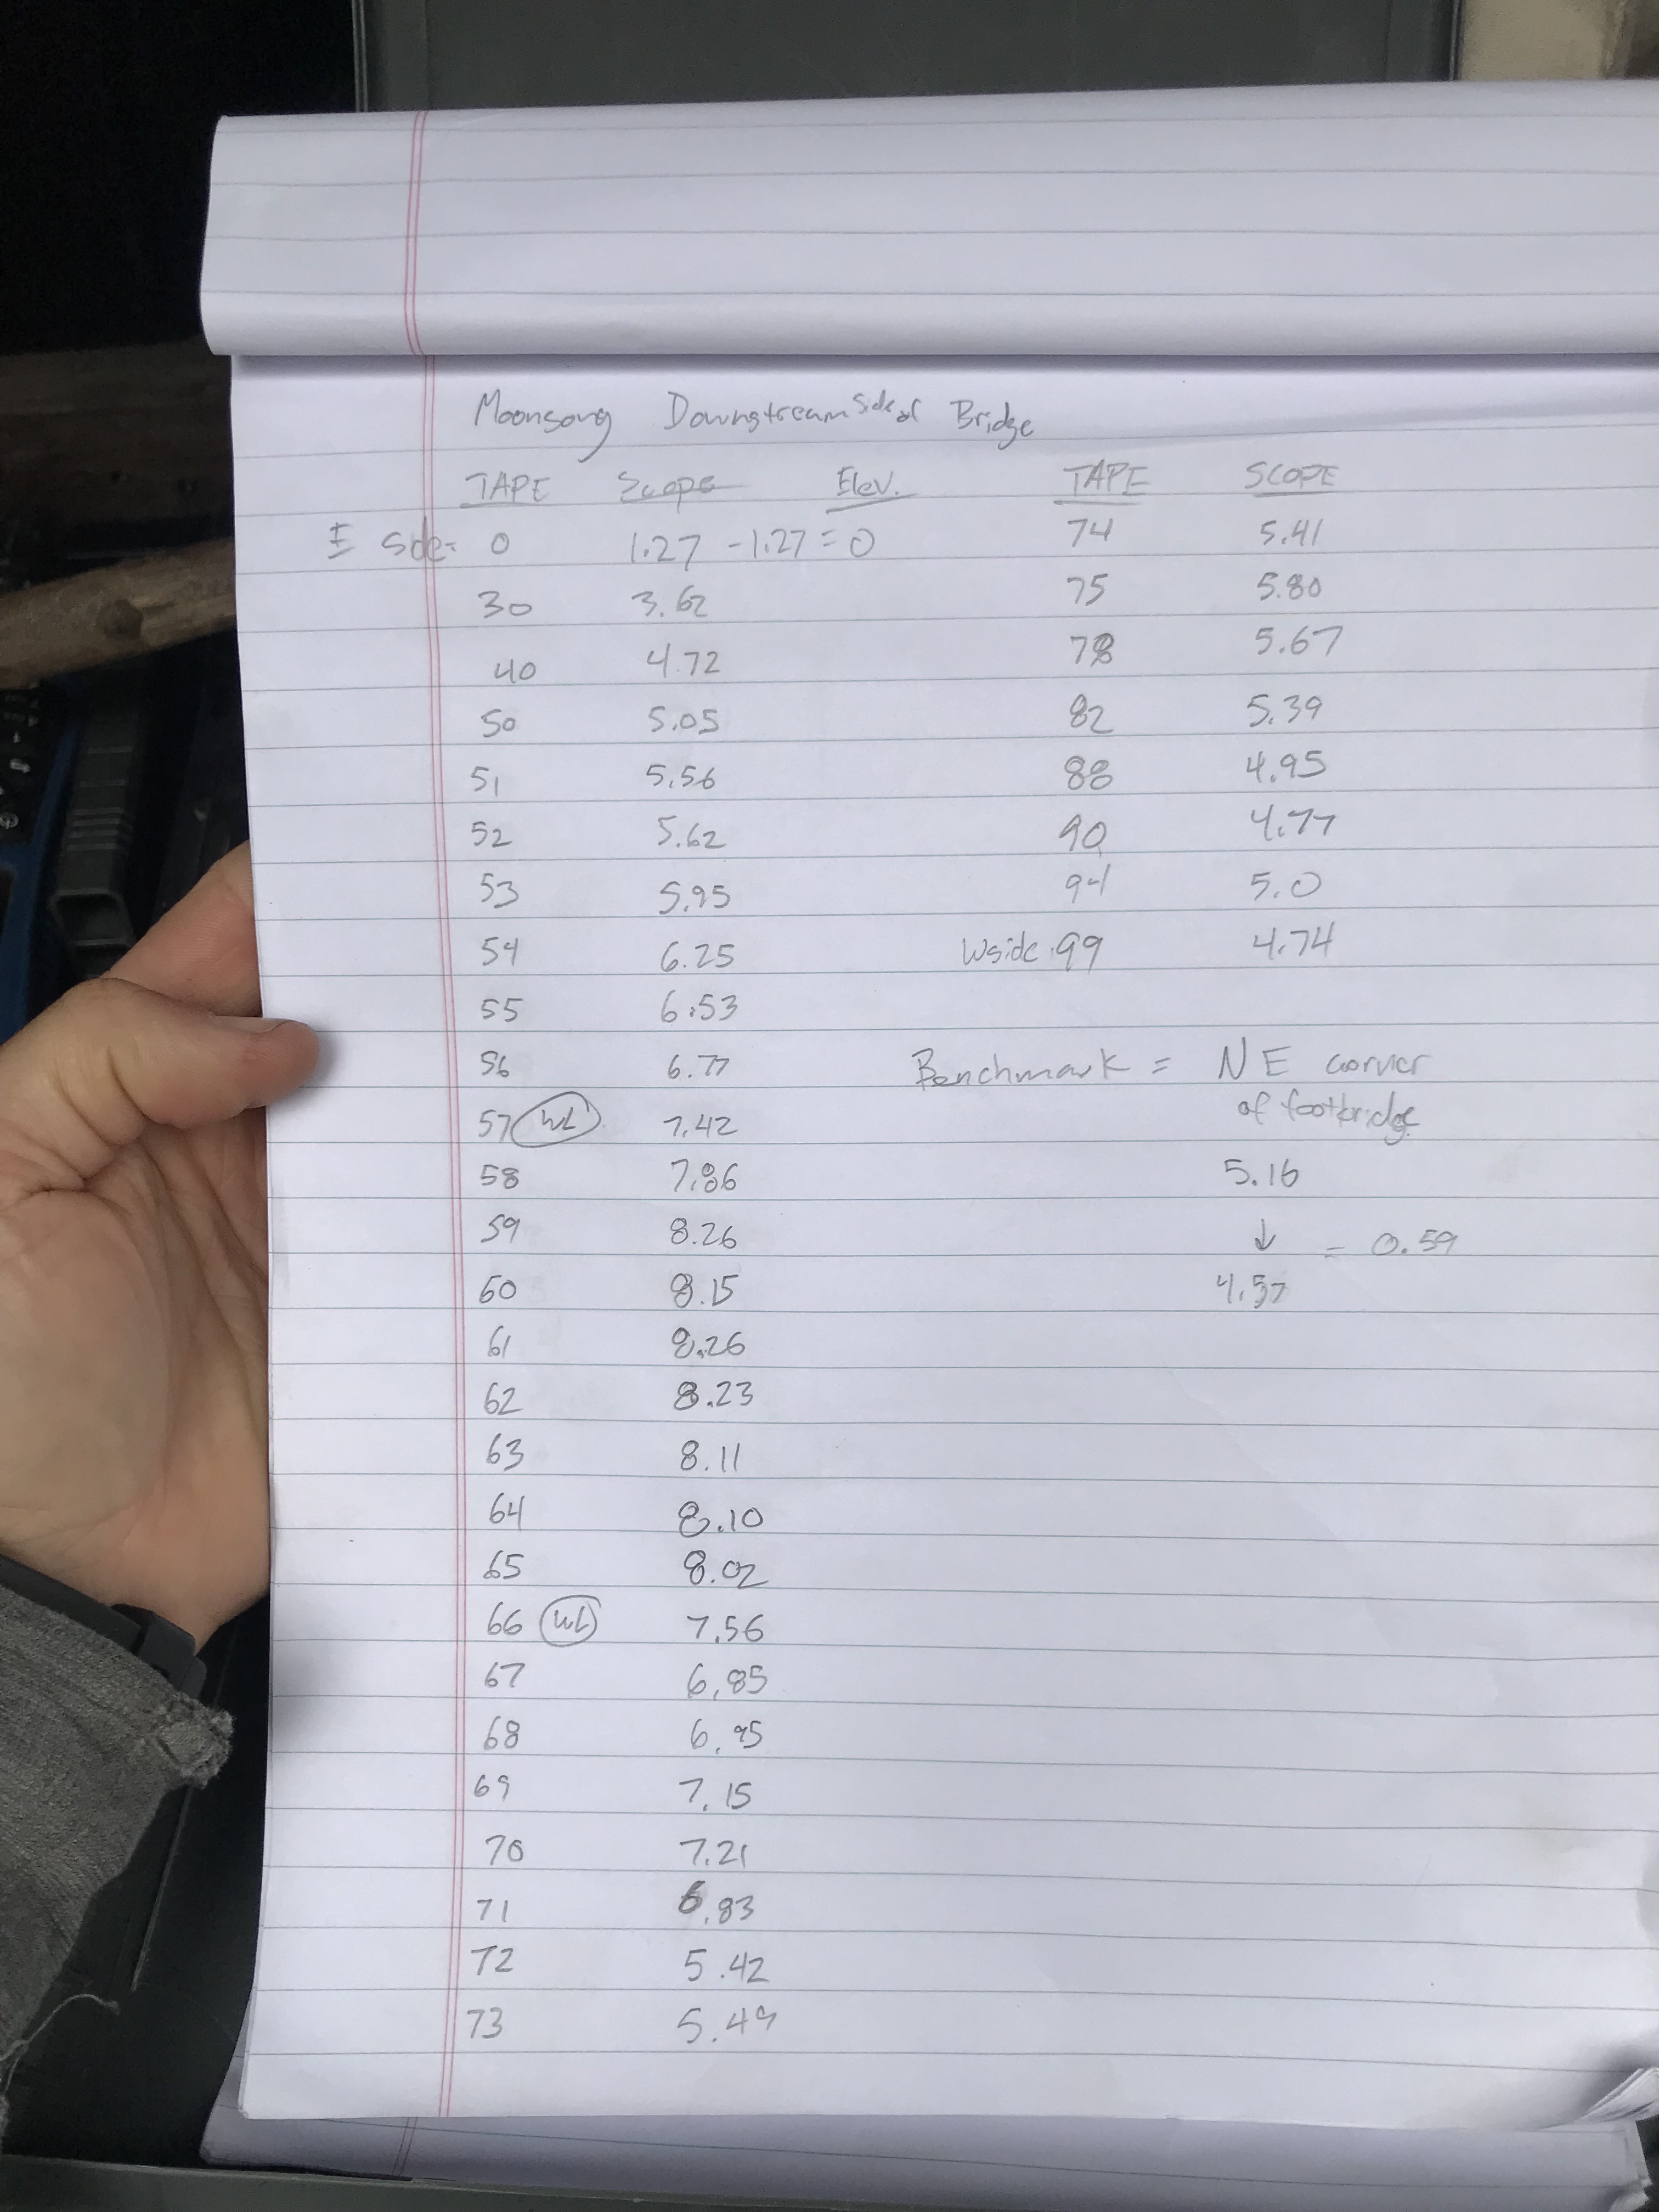 Moonsong Downstream side of Bridge
TAPE Scope Elev.
E side: 0 1.27 - 1.27 = 0
30 3.62
40 4.72
50 5.05
51 5.56
52 5.62
53 5.95
54 6.25
55 6.53
56 6.77
57 WL 7.42
58 7.86
59 8.26
60 8.15
61 8.26
62 8.23
63 8.11
64 8.10
65 8.02
66 WL 7.56
67 6.85
68 6.95
69 7.15
70 7.21
71 6.83
72 5.42
73 5.49
TAPE SCOPE
74 5.41
75 5.80
78 5.67
82 5.39
88 4.95
90 4.77
94 5.0
W side: 99 4.74
Benchmark = NE corner
of footbridge
5.16
↓ = 0.59
4.57